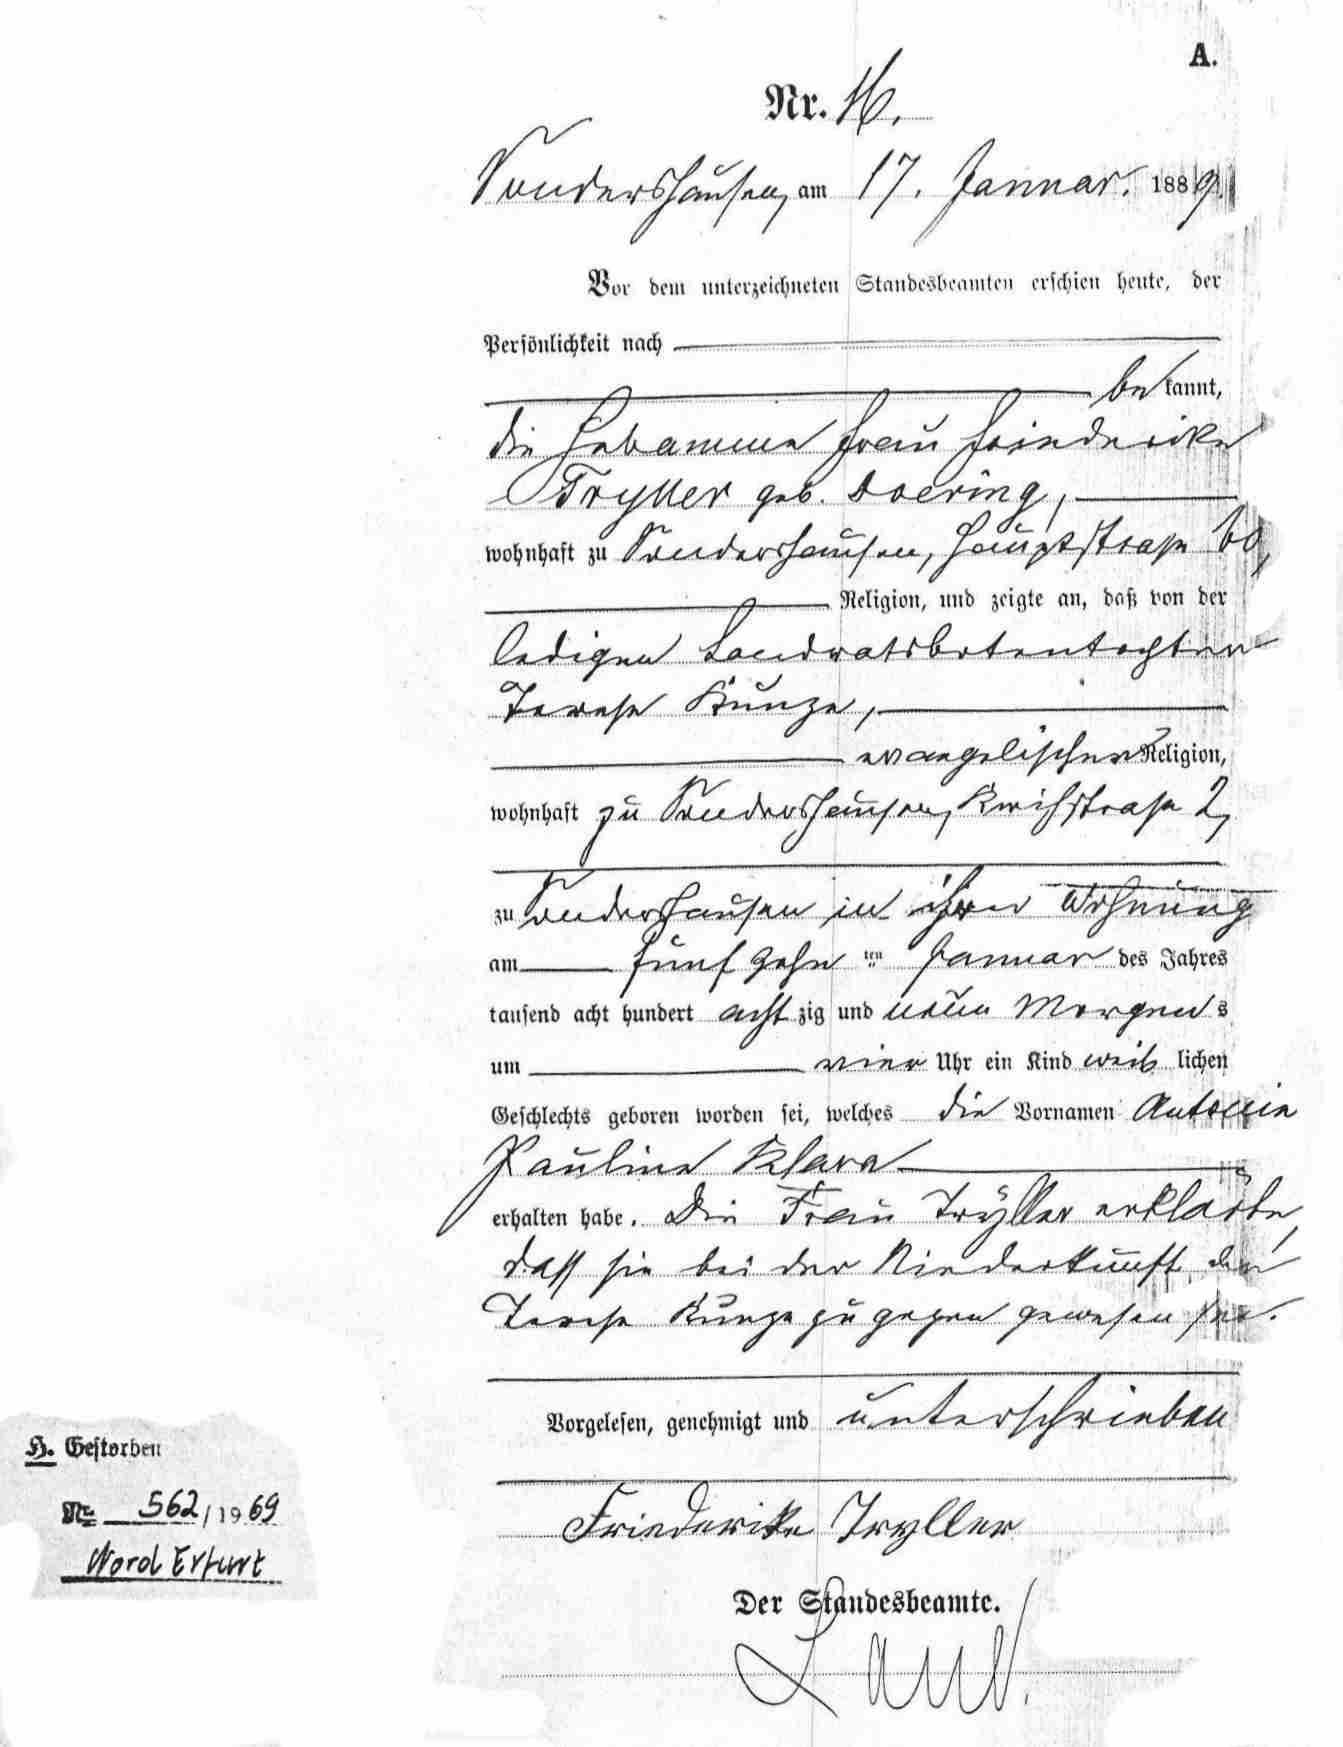 A.
Nr. 16.
Sondershausen, am 17. Januar. 1889.
Vor dem unterzeichneten Standesbeamten erschien heute, der
Persönlichkeit nach
bekannt,
die Hebamme Frau Friederike
Tryller geb. Doering,
wohnhaft zu Sondershausen, Hauptstrasse 60,
Religion, und zeigte an, daß von der
ledigen Landratsbotentochter
Terese Kunze,
evangelischer Religion,
wohnhaft zu Sondershausen, 2,
zu Sondershausen in ihrer Wohnung
am fünfzehnten Januar des Jahres
tausend acht hundert achtzig und neun Morgens
um vier Uhr ein Kind weiblichen
Geschlechts geboren worden sei, welches die Vornamen Antonie
Pauline Klara
erhalten habe. Die Frau Tryller erklärte,
dass sie bei der Niederkunft der
Terese Kunze zugegen gewesen sei.
Vorgelesen, genehmigt und unterschrieben
Friederike Tryller
Der Standesbeamte.
H. Gestorben
Nr. 562/1969
Nord Erfurt